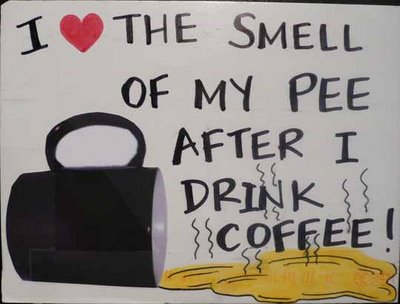 I ❤ THE SMELL
OF MY PEE
AFTER I
DRINK
COFFEE!